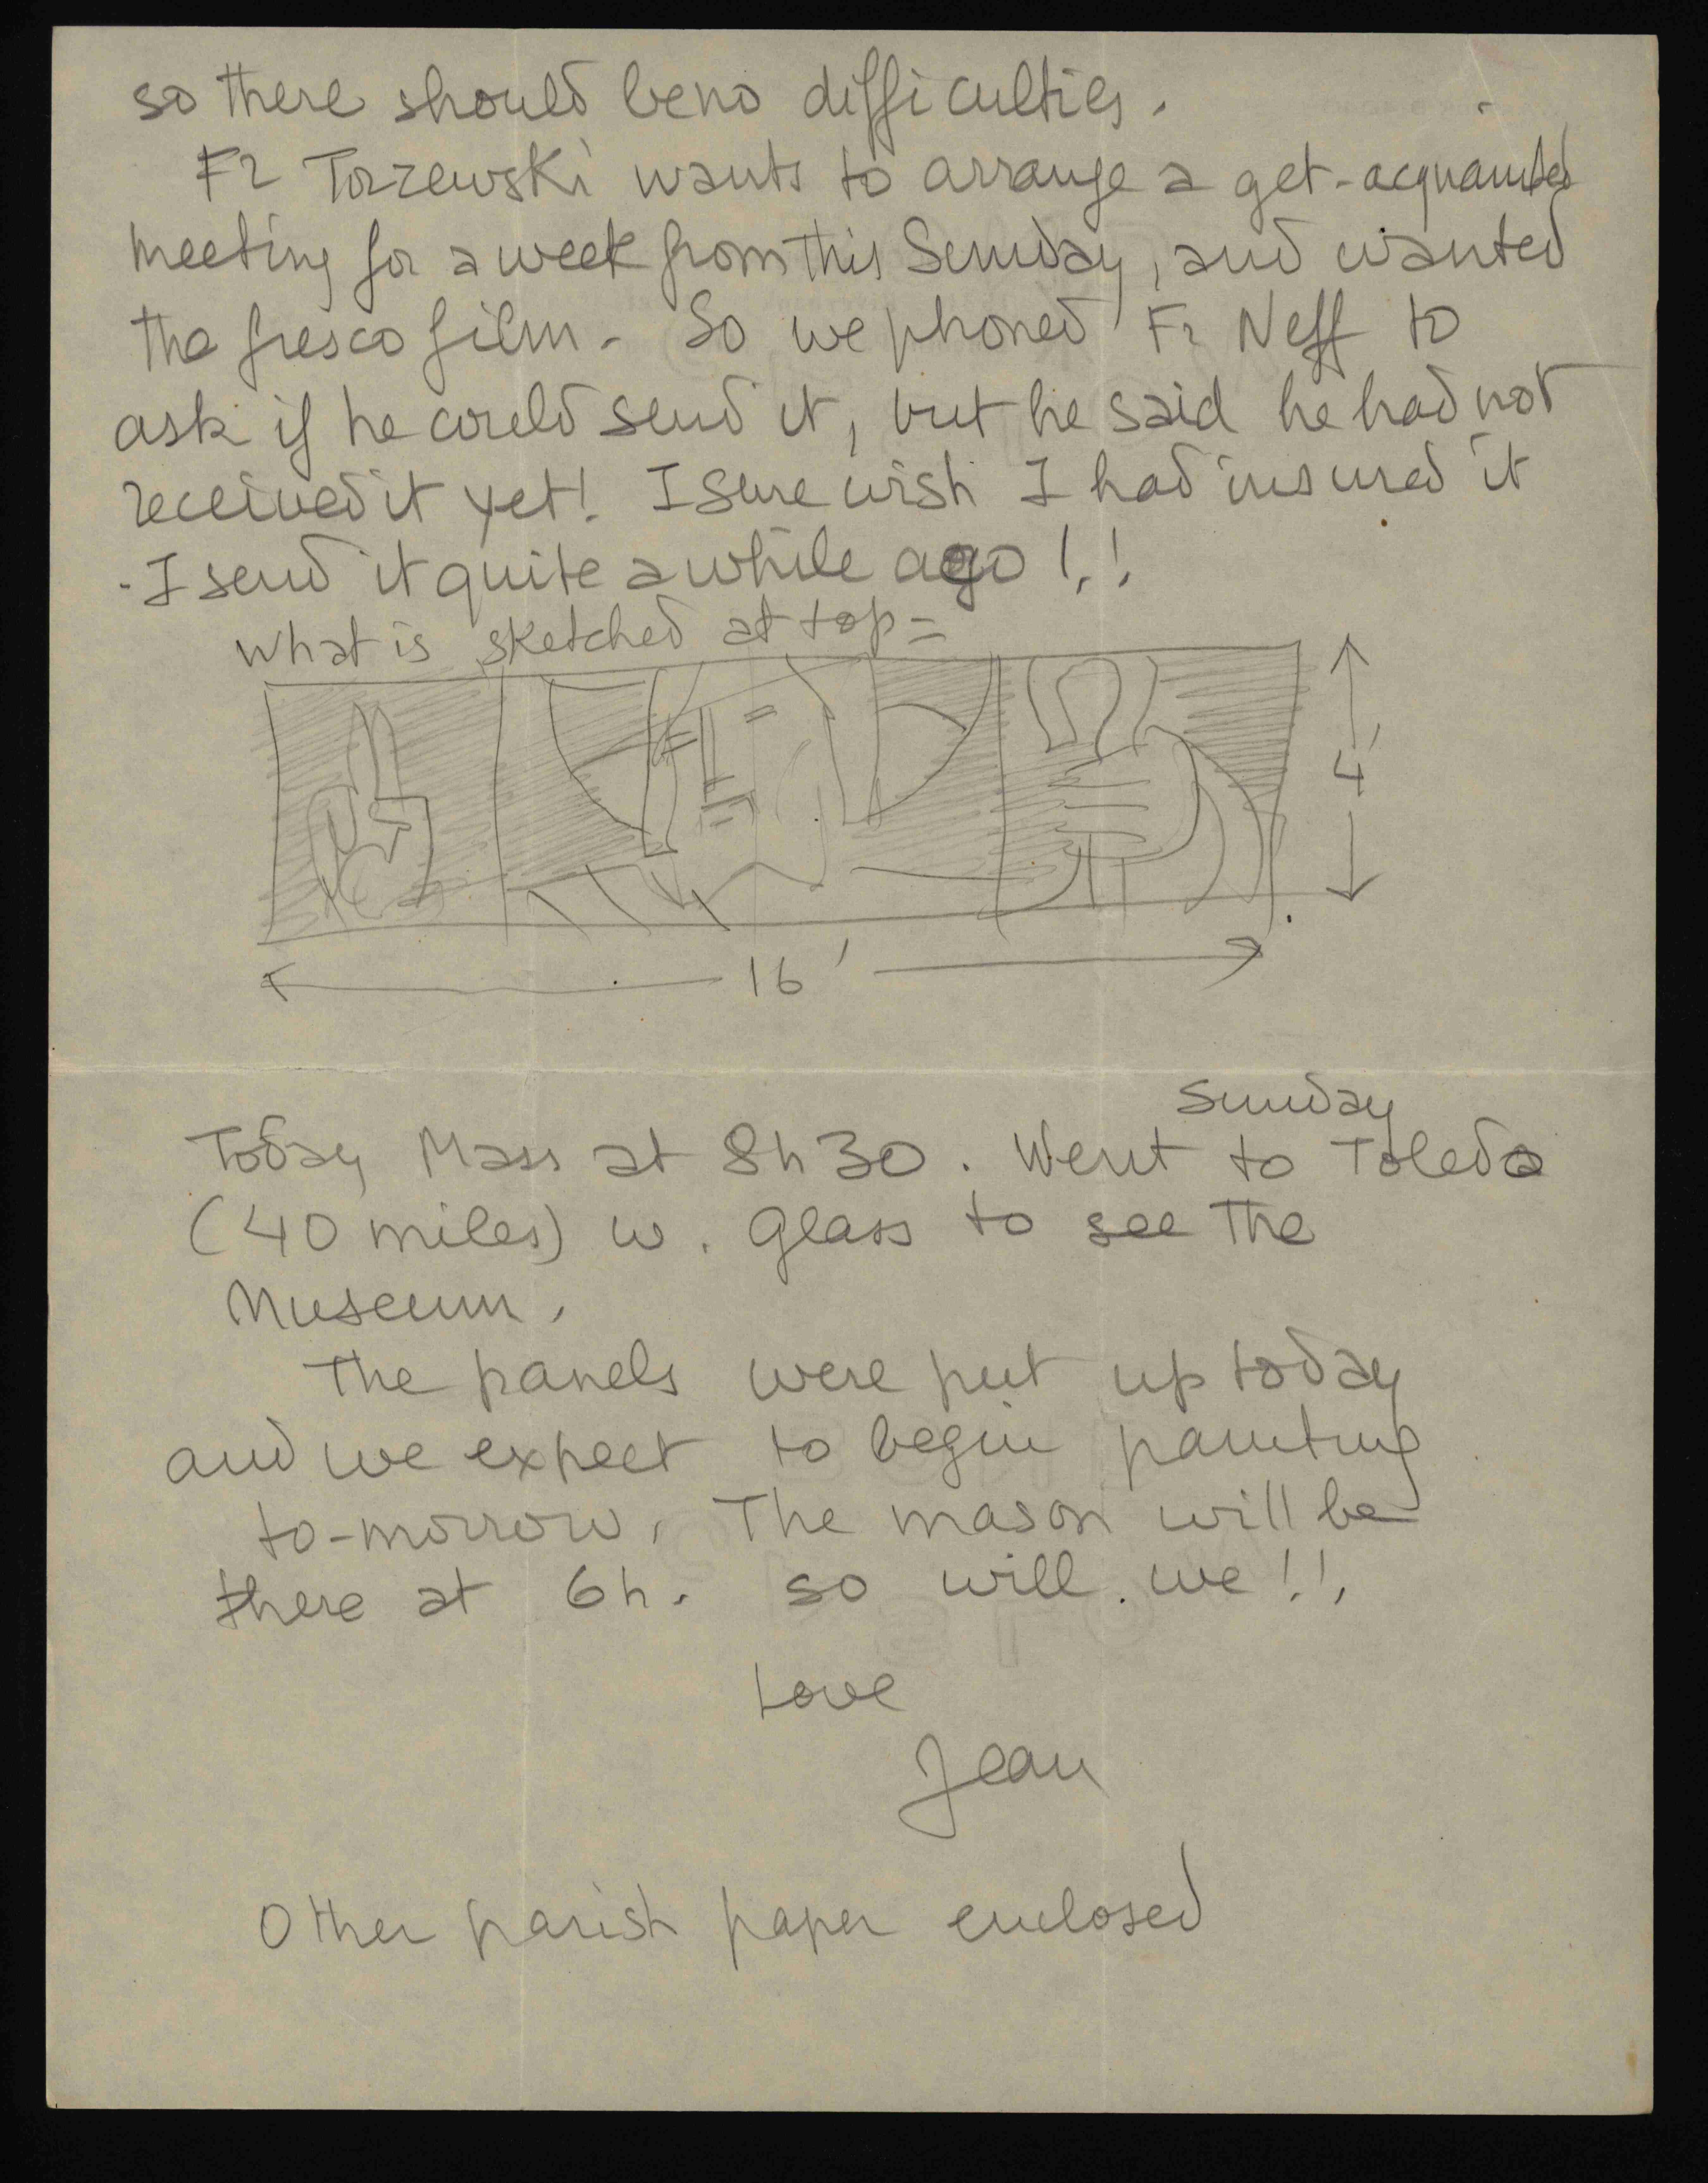 so there should be no difficulties.
Fr Torzewski wants to arrange a get-acquainted
meeting for a week from this Sunday, and wanted
the fresco film. So we phoned Fr Neff to
ask if he could send it, but he said he had not
received it yet! I sure wish I had insured it
- I send it quite a while ago!!
what is sketched at top =
4'
16'
Sunday
Today Mass at 8h30. Went to Toledo
(40 miles) w. Glass to see the
Museum.
The panels were put up today
and we expect to begin painting
to-morrow. The mason will be
there at 6h. so will we!!
Love
Jean
Other parish paper enclosed